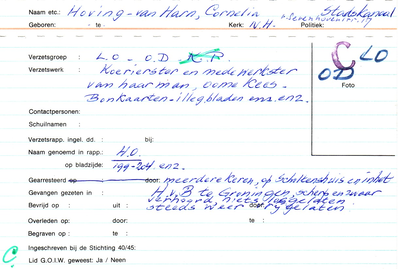 Naam etc.: Hoving-van Harn, Cornelia Stadskanaal
Geboren: - te Kerk: N.H. Politiek:
Verzetsgroep : L.O. - O.D. K.P. C LO
Verzetswerk : Koerierster en medewerkster OD
van haar man, oome Kees. Foto
Bonkaarten-illegbladen enz. enz.
Contactpersonen:
Schuilnamen :
Verzetsrapp. ingel. dd. : bij:
Naam genoemd in rapp.: H.O.
op bladzijde: 199-204. enz.
Gearresteerd door: meerdere keren, op Scholtenshuis en in het
Gevangen gezeten in : H.v.B te Groningen, scherp en zwaar
verhoord, niets losgelaten
Bevrijd op : uit : door: steeds weer vrij gelaten
Overleden op : door: te :
Begraven op : te :
Ingeschreven bij de Stichting 40/45:
C Lid G.O.I.W. geweest: Ja / Neen